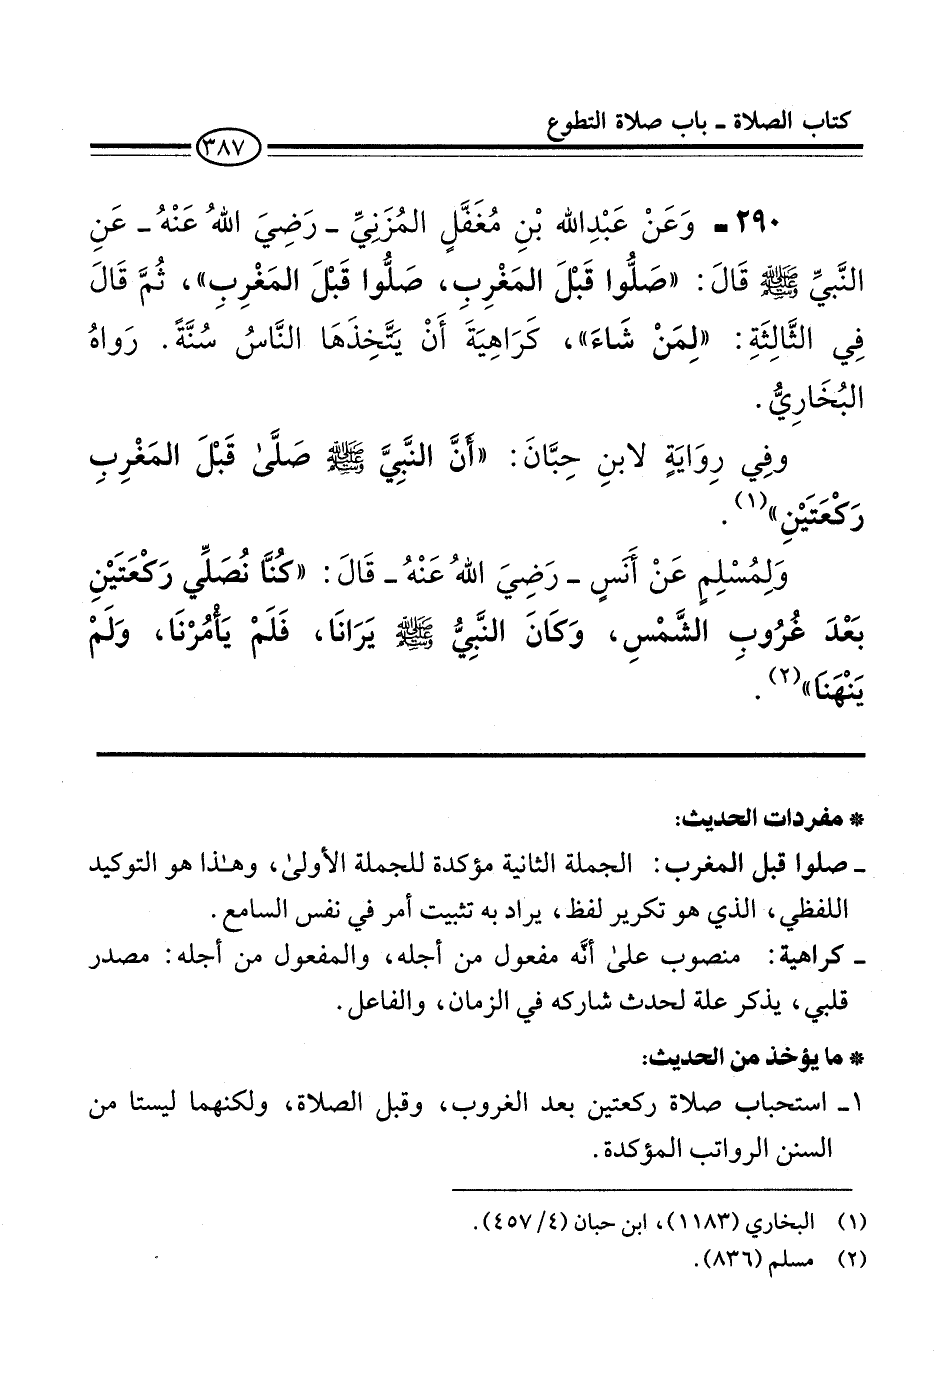 كتاب الصلاة ـ باب صلاة التطوع
٣٨٧
٢٩٠ ـ وَعَنْ عَبْدِالله بْنِ مُغَفَّلٍ المُزَنِيِّ ـ رَضِيَ اللهُ عَنْهُ ـ عَنِ
النَّبِيِّ ﷺ قَالَ: «صَلُّوا قَبْلَ المَغْرِبِ، صَلُّوا قَبْلَ المَغْرِبِ»، ثُمَّ قَالَ
فِي الثَّالِثَةِ: «لِمَنْ شَاءَ»، كَرَاهِيَةَ أَنْ يَتَّخِذَهَا النَّاسُ سُنَّةً. رَوَاهُ
البُخَارِيُّ.
وفِي رِوَايَةٍ لابنِ حِبَّانَ: «أَنَّ النَّبِيَّ ﷺ صَلَّىٰ قَبْلَ المَغْرِبِ
رَكْعَتَيْنِ»(١).
وَلِمُسْلِمٍ عَنْ أَنَسٍ ـ رَضِيَ اللهُ عَنْهُ ـ قَالَ: «كُنَّا نُصَلِّي رَكْعَتَيْنِ
بَعْدَ غُرُوبِ الشَّمْسِ، وَكَانَ النَّبِيُّ ﷺ يَرَانَا، فَلَمْ يَأْمُرْنَا، وَلَمْ
يَنْهَنَا»(٢).
* مفردات الحديث:
ـ صلوا قبل المغرب: الجملة الثانية مؤكدة للجملة الأولىٰ، وهـٰذا هو التوكيد
اللفظي، الذي هو تكرير لفظ، يراد به تثبيت أمر في نفس السامع.
ـ كراهية: منصوب علىٰ أنَّه مفعول من أجله، والمفعول من أجله: مصدر
قلبي، يذكر علة لحدث شاركه في الزمان، والفاعل.
* ما يؤخذ من الحديث:
١ـ استحباب صلاة ركعتين بعد الغروب، وقبل الصلاة، ولكنهما ليستا من
السنن الرواتب المؤكدة.
(١) البخاري (١١٨٣)، ابن حبان (٤/ ٤٥٧).
(٢) مسلم (٨٣٦).